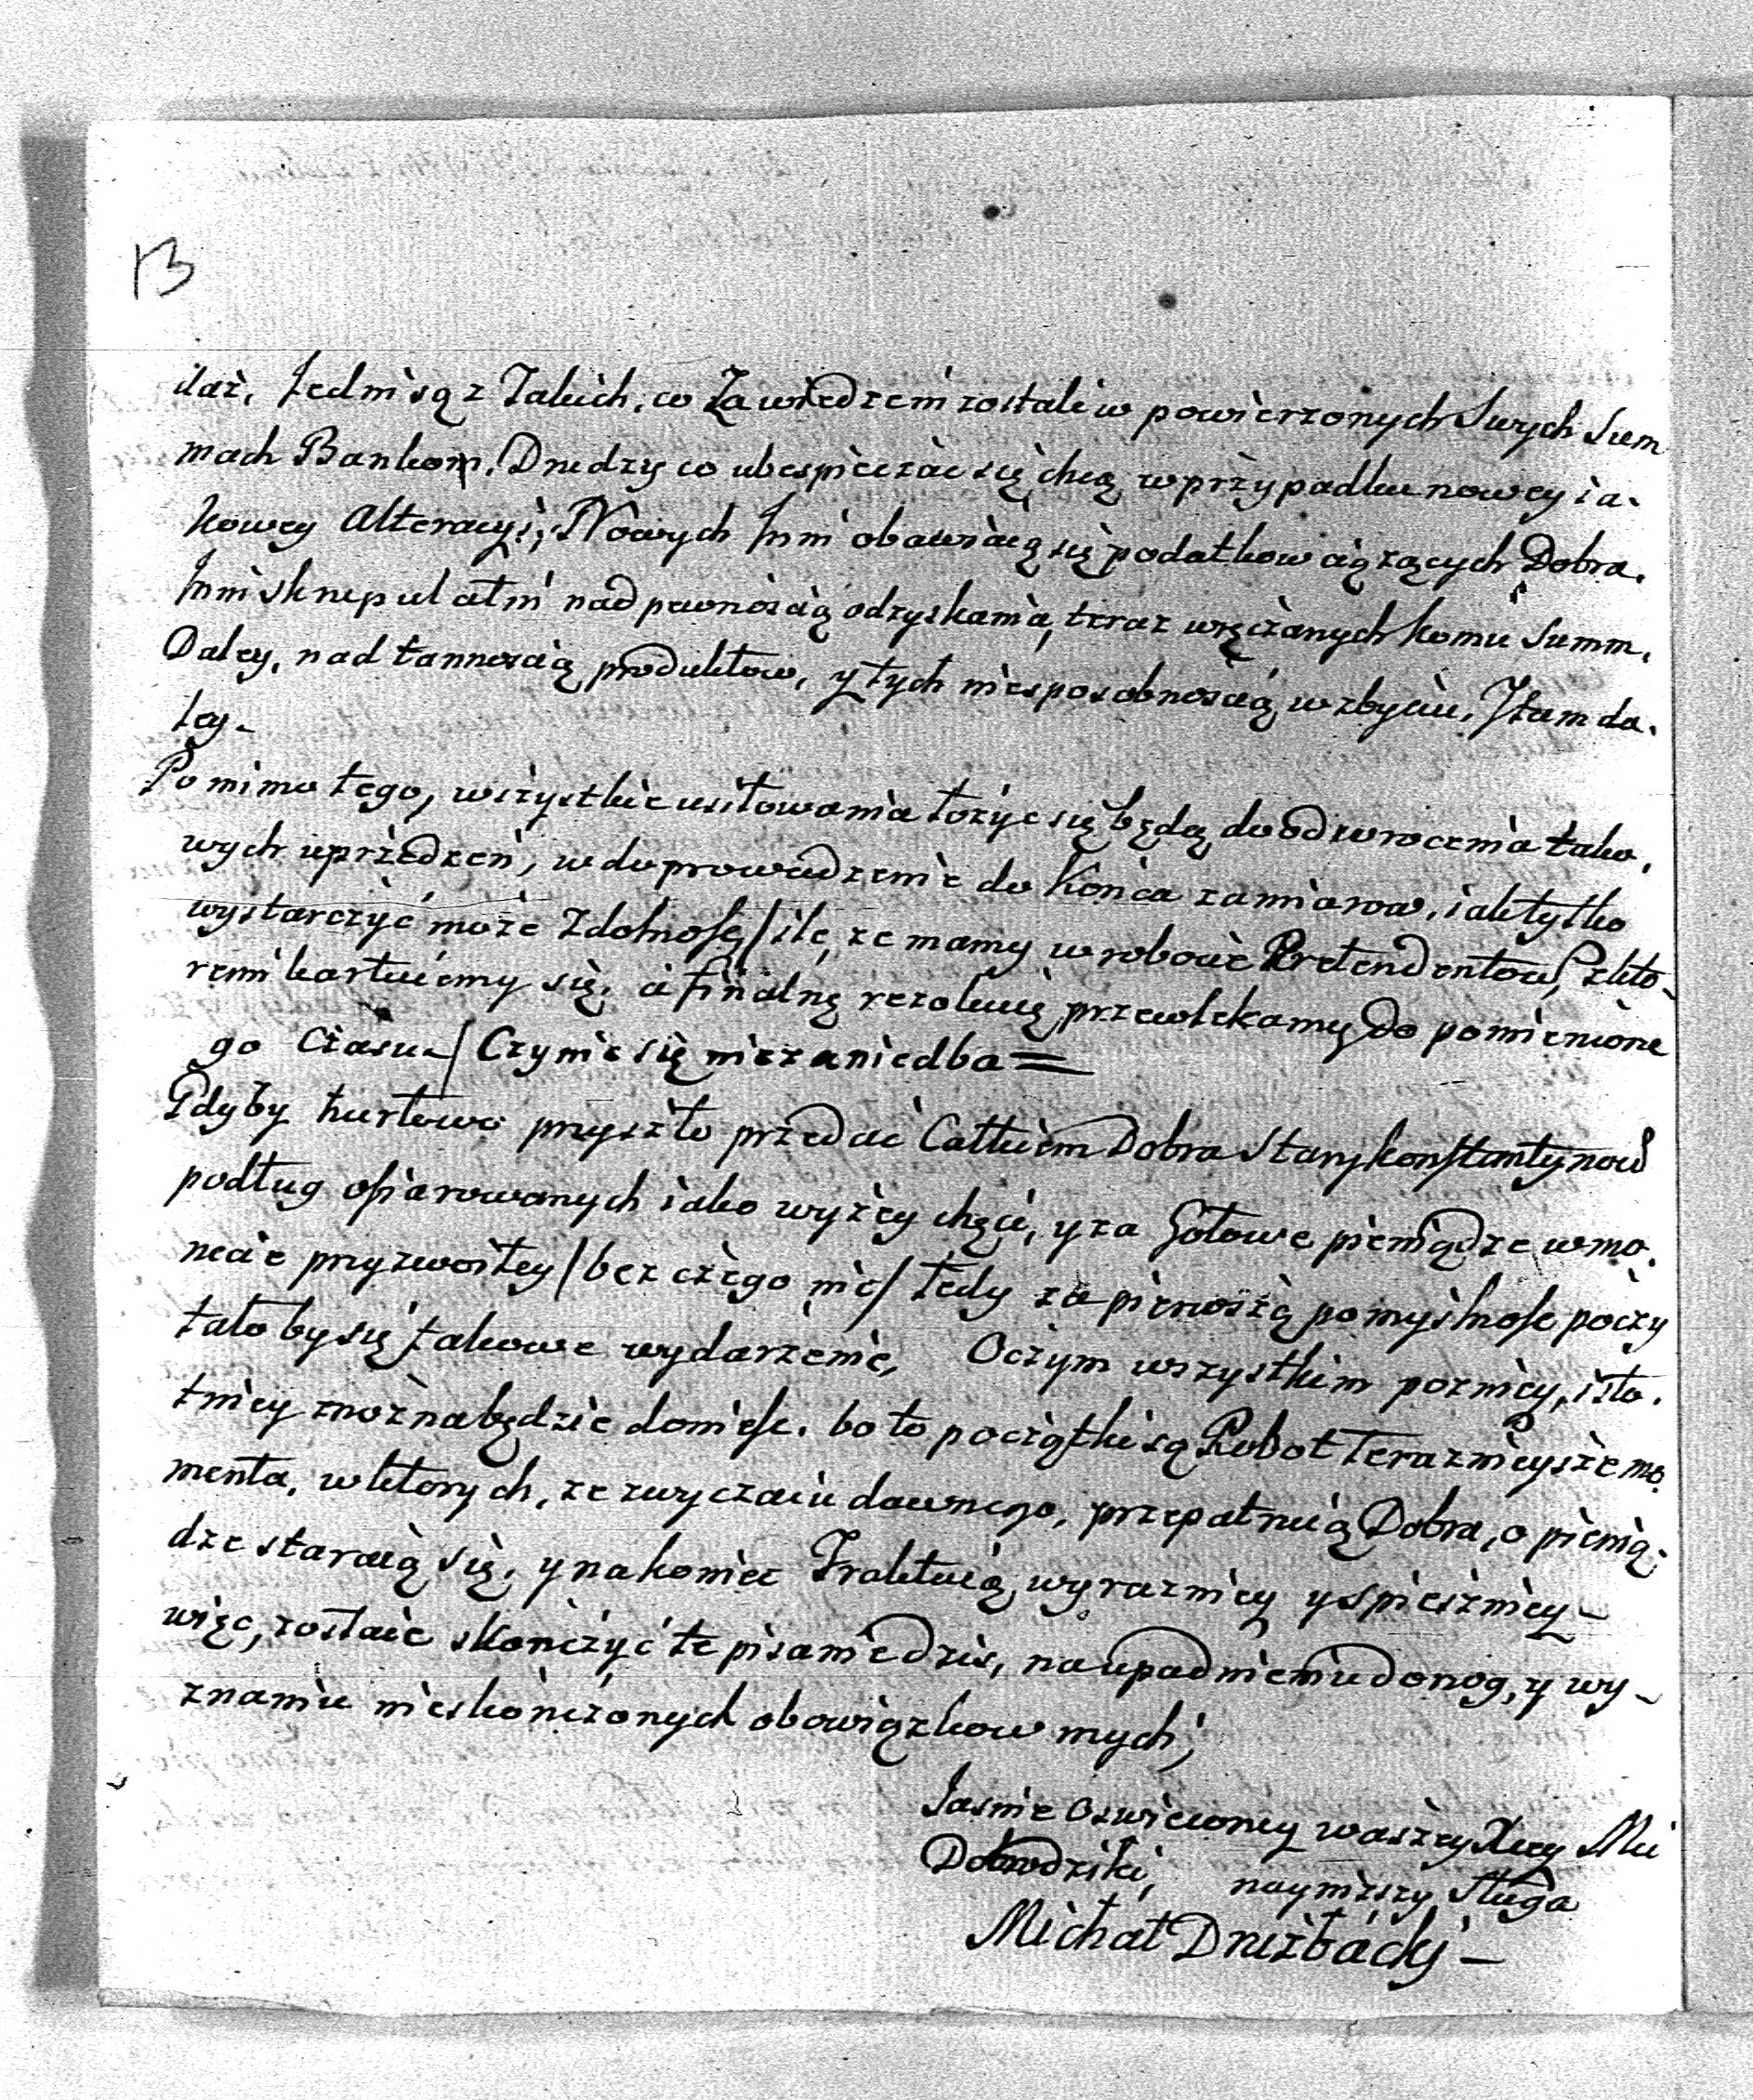 13
iaż, Jedni są z Takich, co Zawiedzeni zostali w powierzonych Swych Sum
mach Bankom. Drudzy co ubespieczać się chcą, w przypadku nowey ia-
kowey Alteracyi; Nowych Inni obawiaią się podatkow ciążących Dobra.
Inni skrupulatni nad pewnością odzyskania, teraz wręczanych komu Summ.
Daley, nad tannością produktow, y tych niesposobnością w zbyciu, I tam da-
ley.
Po mimo tego, wszystkie usiłowania łożyc się będą, do odwrocenia tako-
wych uprzedzeń, w doprowadzenie do Końca zamiarow, iak tylko
wystarczyć może Zdolność / ile, że mamy w robocie Pretendentow, z kto-
remi kartuiemy się, a finalną rezolucią przewlekamy do pomienione
go Czasu / Czynić się niezaniedba =
Gdyby hurtowo przyszło przedać Całkiem Dobra Starykonstantynow
podług ofiarowanych iako wyżey chęci, y za Gotowe pieniądze w mo-
necie przyzwoitey / bez czego nic / tedy za pierwszą pomyślność poczy
tało by się takowe wydarzenie, Oczym wszystkim pozniey, isto-
tniey można będzie donieść. bo to początki są Robot Terazniejsze mo
menta, w ktorych, ze zwyczaiu dawnego, przepatruią Dobra, o pienią-
dze staraią się, y nakoniec Traktuią, wyrazniey y spieszniey -
więc, zostaie skończyć te pisanie dzis, na upadnieniu do nog, y wy-
znaniu nieskończonych obowiązkow mych;
Jasnie Oswieconey waszey Xcey Mci
Dobrodziki, naymższy Sługa
Michał Drużbacki -